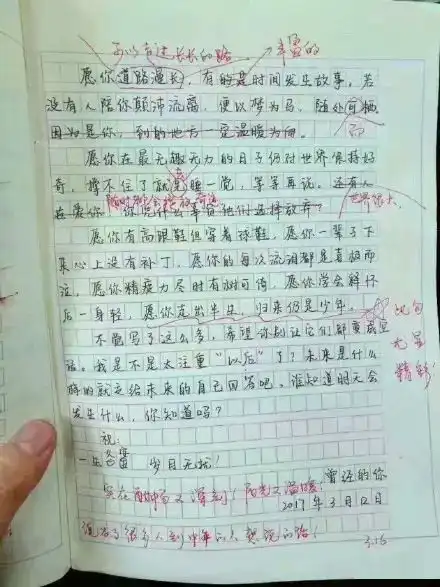 可以奔过长长的路 丰盈的
愿你道路漫长，有的是时间发生故事，若
没有人陪你颠沛流离，便以梦为马，随处可栖
因为是你，到的地方一定温暖为向。
愿你在最无趣无力的日子仍对世界保持好
奇，撑不住了就去睡一觉，等等再说。还有人
在爱你，你凭什么辜负他们选择放弃？
世界很大
愿你有高跟鞋但穿着球鞋，愿你一辈子下
来心上没有补丁，愿你的每次流泪都是喜极而
泣，愿你精疲力尽时有树可倚，愿你学会释怀
后一身轻，愿你走出半生，归来仍是少年。
不能写了这么多，希望你别让它们都变成空
话。我是不是太注重“以后”了？未来是什么
样的就交给未来的自己回答吧。谁知道明天会
发生什么，你知道吗？
此句
尤呈
精彩！
祝：
一生 岁月无忧！
曾经的你
2017年3月12日
实在 又深刻！阳光又温暖，
说出了很多人到中年的人想说的话！
3.16